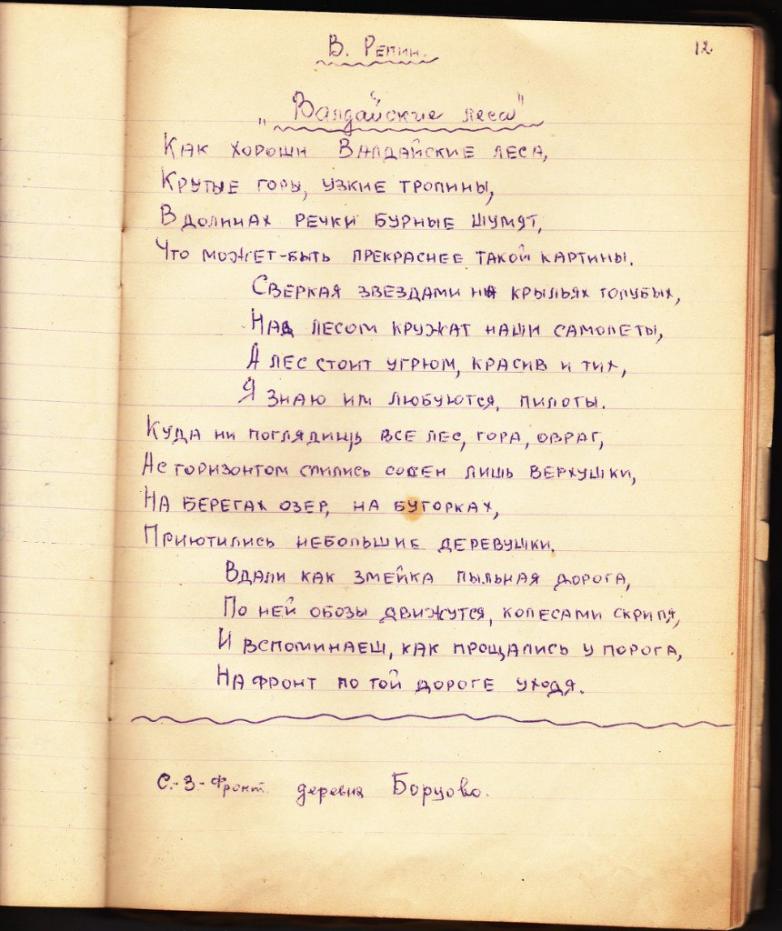 В. Репин.
12
„Валдайские леса"
Как хороши Валдайские леса,
Крутые горы, узкие тропины,
В долинах речки бурные шумят,
Что может-быть прекраснее такой картины.
Сверкая звездами на крыльях голубых,
Над лесом кружат наши самолеты,
А лес стоит угрюм, красив и тих,
Я знаю им любуются, пилоты.
Куда ни поглядишь все лес, гора, овраг,
А с горизонтом слились сосен лишь верхушки,
На берегах озер, на бугорках,
Приютились небольшие деревушки.
Вдали как змейка пыльная дорога,
По ней обозы движутся, колесами скрипя,
И вспоминаеш, как прощались у порога,
На фронт по той дороге уходя.
С.-З-Фронт. деревня Борцово.